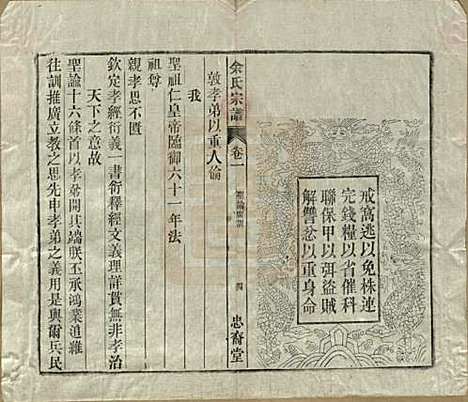 戒窩逃以免株連
完錢糧以省催科
聯保甲以弭盜賊
解讐忿以重身命
余氏宗譜
卷一
聖諭廣訓
四
忠裔堂
敦孝弟以重人倫
我
聖祖仁皇帝臨御六十一年法
祖尊
親孝思不匱
欽定孝經衍義一書衍釋經文義理詳貫無非孝治
天下之意故
聖諭十六條首以孝弟開其端朕丕承鴻業追維
往訓推廣立教之思先申孝弟之義用是與爾兵民